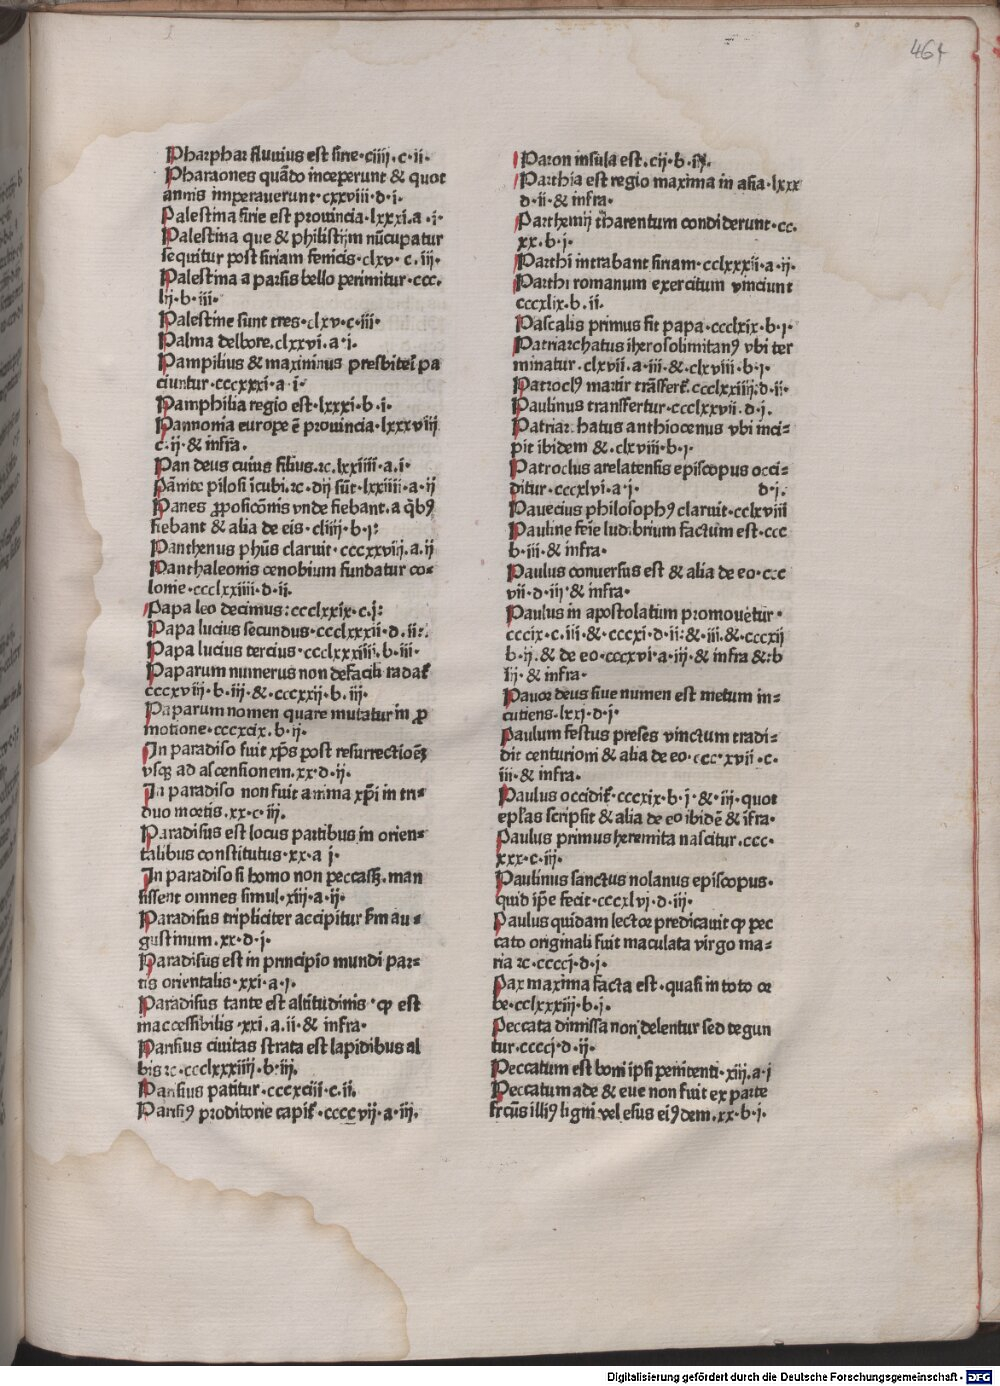 464
Pharphar fluuius est sirie·ciiij·c·ii·
Pharaones quādo inceperunt & quot
annis imperauerunt·cxxviii·d·i·
Palestina sirie est prouincia·lxxxi·a·i·
Palestina que & philistijm nūcupatur
sequitur post siriam fenicis·clxv·c·iii·
Palestina a parsis bello perimitur·ccc·
lij·b·iii·
Palestine sunt tres·clxv·c·iii·
Palma delbore·clxxvi·a·i·
Pampilius & maximinus presbiteri pa
ciuntur·cccxxxi·a·i·
Pamphilia regio est·lxxxi·b·i·
Pannonia europe ē prouincia·lxxxviij
c·ij·& infra·
Pan deus cuius filius·⁊c·lxxiiii·a·i·
pilosi īcubi·⁊c·dij sūt·lxxiiii·a·ij
Panes ꝓposicōnis vnde fiebant·a q̄bꝰ
fiebant & alia de eis·cliiij·b·i:
Panthenus ph̄us claruit·cccxxviij·a·ij
Panthaleonis cenobium fundatur co-
lonie·cccclxxiiii·d·ii·
Papa leo decimus:cccclxxix·c·j:
Papa lucius secundus·cccclxxxii·d·ii:·
Papa lucius tercius·cccclxxxiiij·b·iii·
Paparum numerus non defacili radat᷑
cccxviij·b·iij·&·cccxxij·b·iij·
Paparum nomen quare mutatur in ꝓ
motione·cccxcix·b·ij·
In paradiso fuit xp̄s post resurrectioēȝ
vsqꝫ ad ascensionem·xx·d·ij·
In paradiso non fuit anima xp̄i in tri-
duo mortis·xx·c·iij·
Paradisus est locus partibus in orien-
talibus constitutus·xx·a j·
In paradiso si homo non peccassꝫ·man
sissent omnes simul·xiij·a·ij·
Paradisus tripliciter accipitur s̄m au-
gustinum·xx·d·j·
Paradisus est in principio mundi par-
tis orientalis·xxi·a·i·
Paradisus tante est altitudinis·ꝙ est
inaccessibilis·xxi·a·ii·& infra·
Parisius ciuitas strata est lapidibus al
bis ⁊c·cccclxxxiiij·b·iij·
Parisius patitur·cccxciii·c·ii·
Parisiꝰ proditorie capit᷑·ccccvij·a·iij·
Paron insula est·cij·b·iij·
Parthia est regio maxima in asia·lxxx
d·ii·& infra·
Parthemij tharentum condiderunt·cc·
xx·b·j·
Parthi intrabant siriam·cclxxxii·a·ij·
Parthi romanum exercitum vinciunt
cccxlix·b·ii·
Pascalis primus fit papa·ccclxix·b·i·
Patriarchatus iherosolimitanꝰ vbi ter
minatur·clxvii·a·iii·&·clxviii·b·i·
Patroclꝰ martir trāsfert᷑·cccclxxiiij·d·ii·
Paulinus transfertur·ccclxxvii·d·j·
Patriarchatus anthiocenus vbi inci-
pit ibidem &·clxviii·b·i·
Patroclus arelatensis episcopus occi-
ditur·cccxlvi·a·i· d·j·
Pauecius philosophꝰ claruit·cclxviii
Pauline feie ludibrium factum est·ccc
b·iii·& infra·
Paulus conuersus est & alia de eo·ccc
vii·d·iij·& infra·
Paulus in apostolatum promouetur·
cccix·c·iii·&·cccxi·d·ii:&·iii·&·cccxij
b·ij·& de eo·cccxvi·a·iij·& infra &:b
iij·& infra·
Pauor deus siue numen est metum in-
cutiens·lxxi·d·j·
Paulum festus preses vinctum tradi-
dit centurioni & alia de eo·cccxvii·c·
iii·& infra·
Paulus occidit᷑·cccxix·b·j·&·iij·quot
epl̄as scripsit & alia de eo ibidē & īfra·
Paulus primus heremita nascitur·ccc·
xxx·c·iij·
Paulinus sanctus nolanus episcopus·
quid ip̄e fecit·cccxlvj·d·iij·
Paulus quidam lector predicauit ꝙ pec
cato originali fuit maculata virgo ma-
ria ⁊c·ccccj·d·j·
Pax maxima facta est·quasi in toto or
be·cclxxxiij·b·j·
Peccata dimissa non delentur sed tegun
tur·ccccj·d·ij·
Peccatum est boni ipsi penitenti·xiij·a·j
Peccatum ade & eue non fuit ex parte
frc̄us illiꝰ ligni vel esus eiꝰdem·xx·b·j·
Digitalisierung gefördert durch die Deutsche Forschungsgemeinschaft - DFG